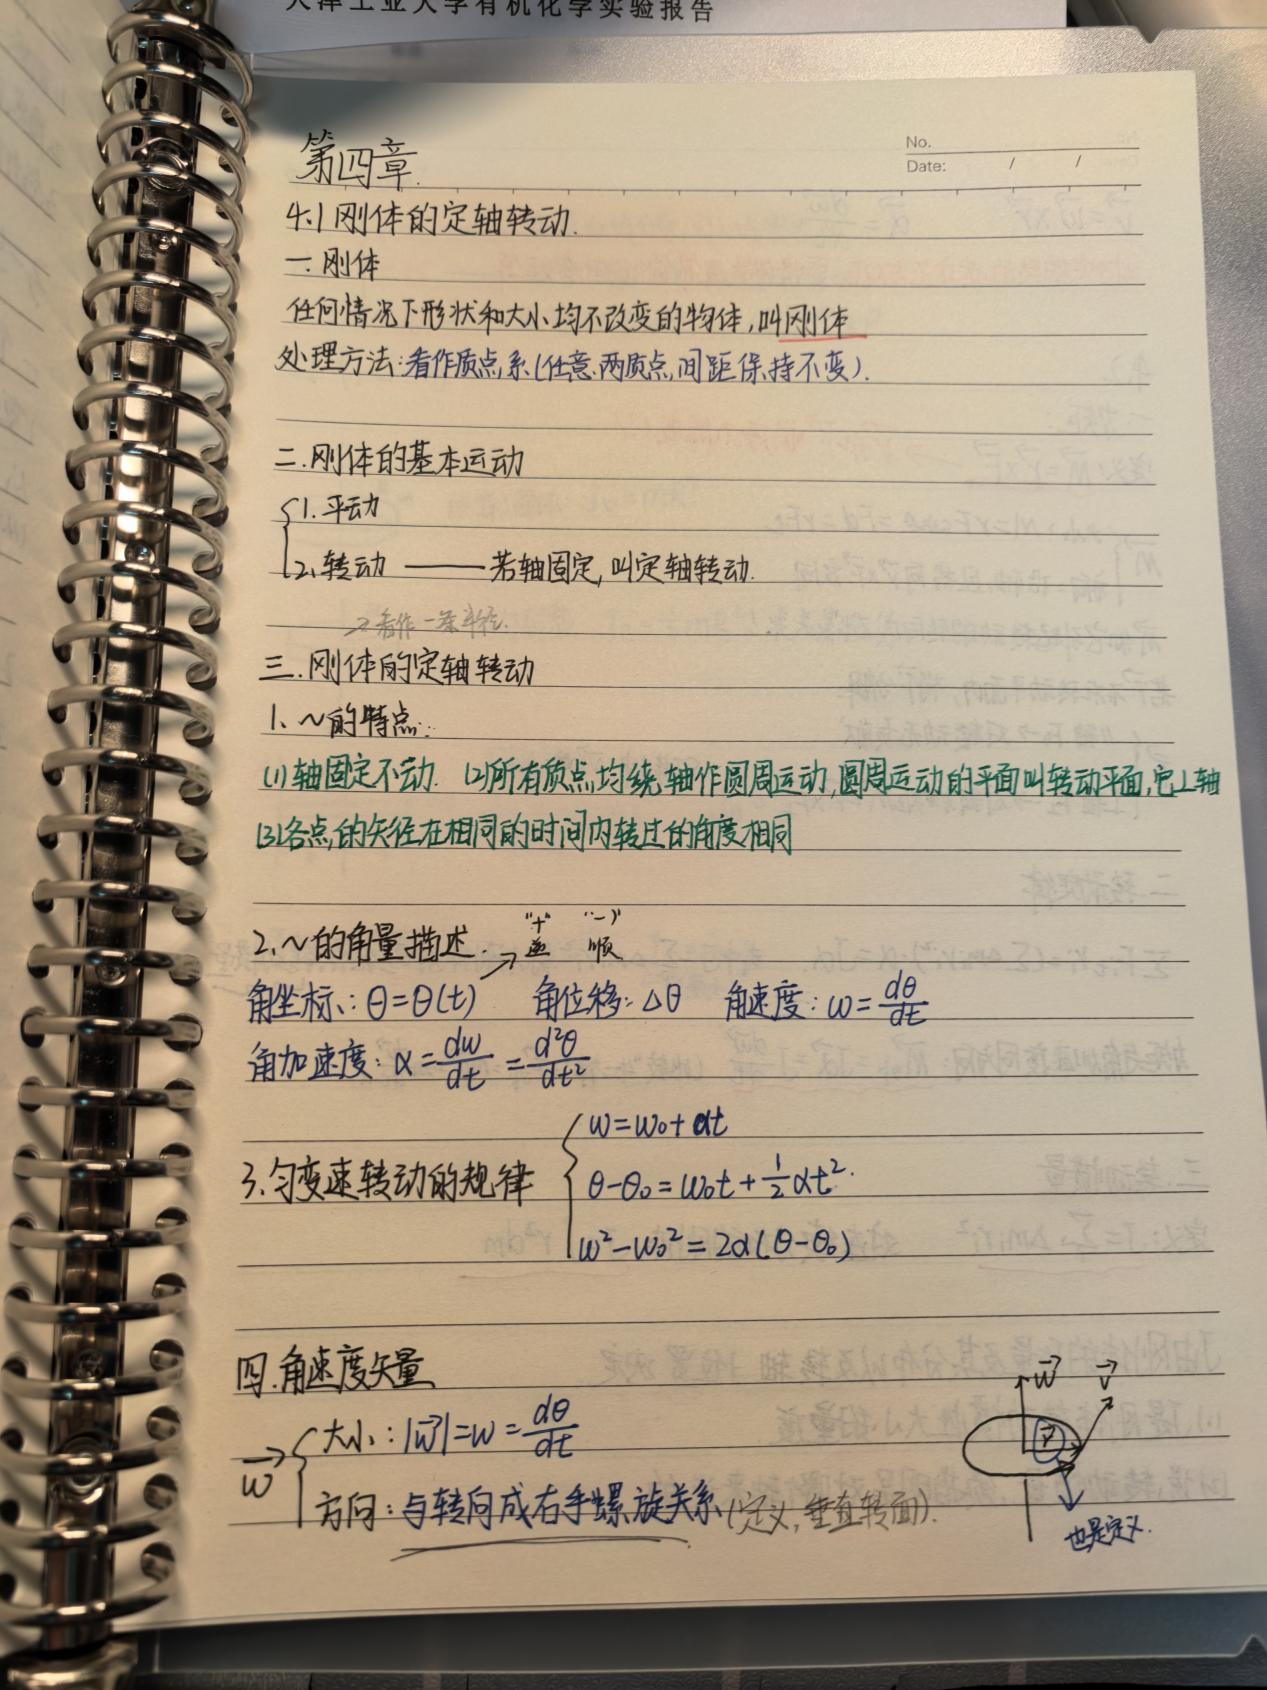 天津工业大学有机化学实验报告
No.
Date: / /
第四章.
4.1 刚体的定轴转动.
一.刚体
任何情况下形状和大小均不改变的物体,叫刚体
处理方法:看作质点系(任意两质点间距保持不变).
二.刚体的基本运动
1.平动
2.转动 ——若轴固定,叫定轴转动.
看作一条半径.
三.刚体的定轴转动
1、~的特点:
(1)轴固定不动. (2)所有质点均绕轴作圆周运动,圆周运动的平面叫转动平面,它⊥轴
(3)各点的矢径在相同的时间内转过的角度相同
"+" "-"
2.~的角量描述. 逆 顺
角坐标:θ=θ(t) 角位移:Δθ 角速度:ω=dθ/dt
角加速度:α=dω/dt=d²θ/dt²
ω=ω₀+αt
3.匀变速转动的规律 θ-θ₀=ω₀t+½αt².
ω²-ω₀²=2α(θ-θ₀)
四.角速度矢量
ω⃗ v⃗
大小:|ω⃗|=ω=dθ/dt
r⃗
ω⃗
方向:与转向成右手螺旋关系(定义,垂直转面).
也是定义.